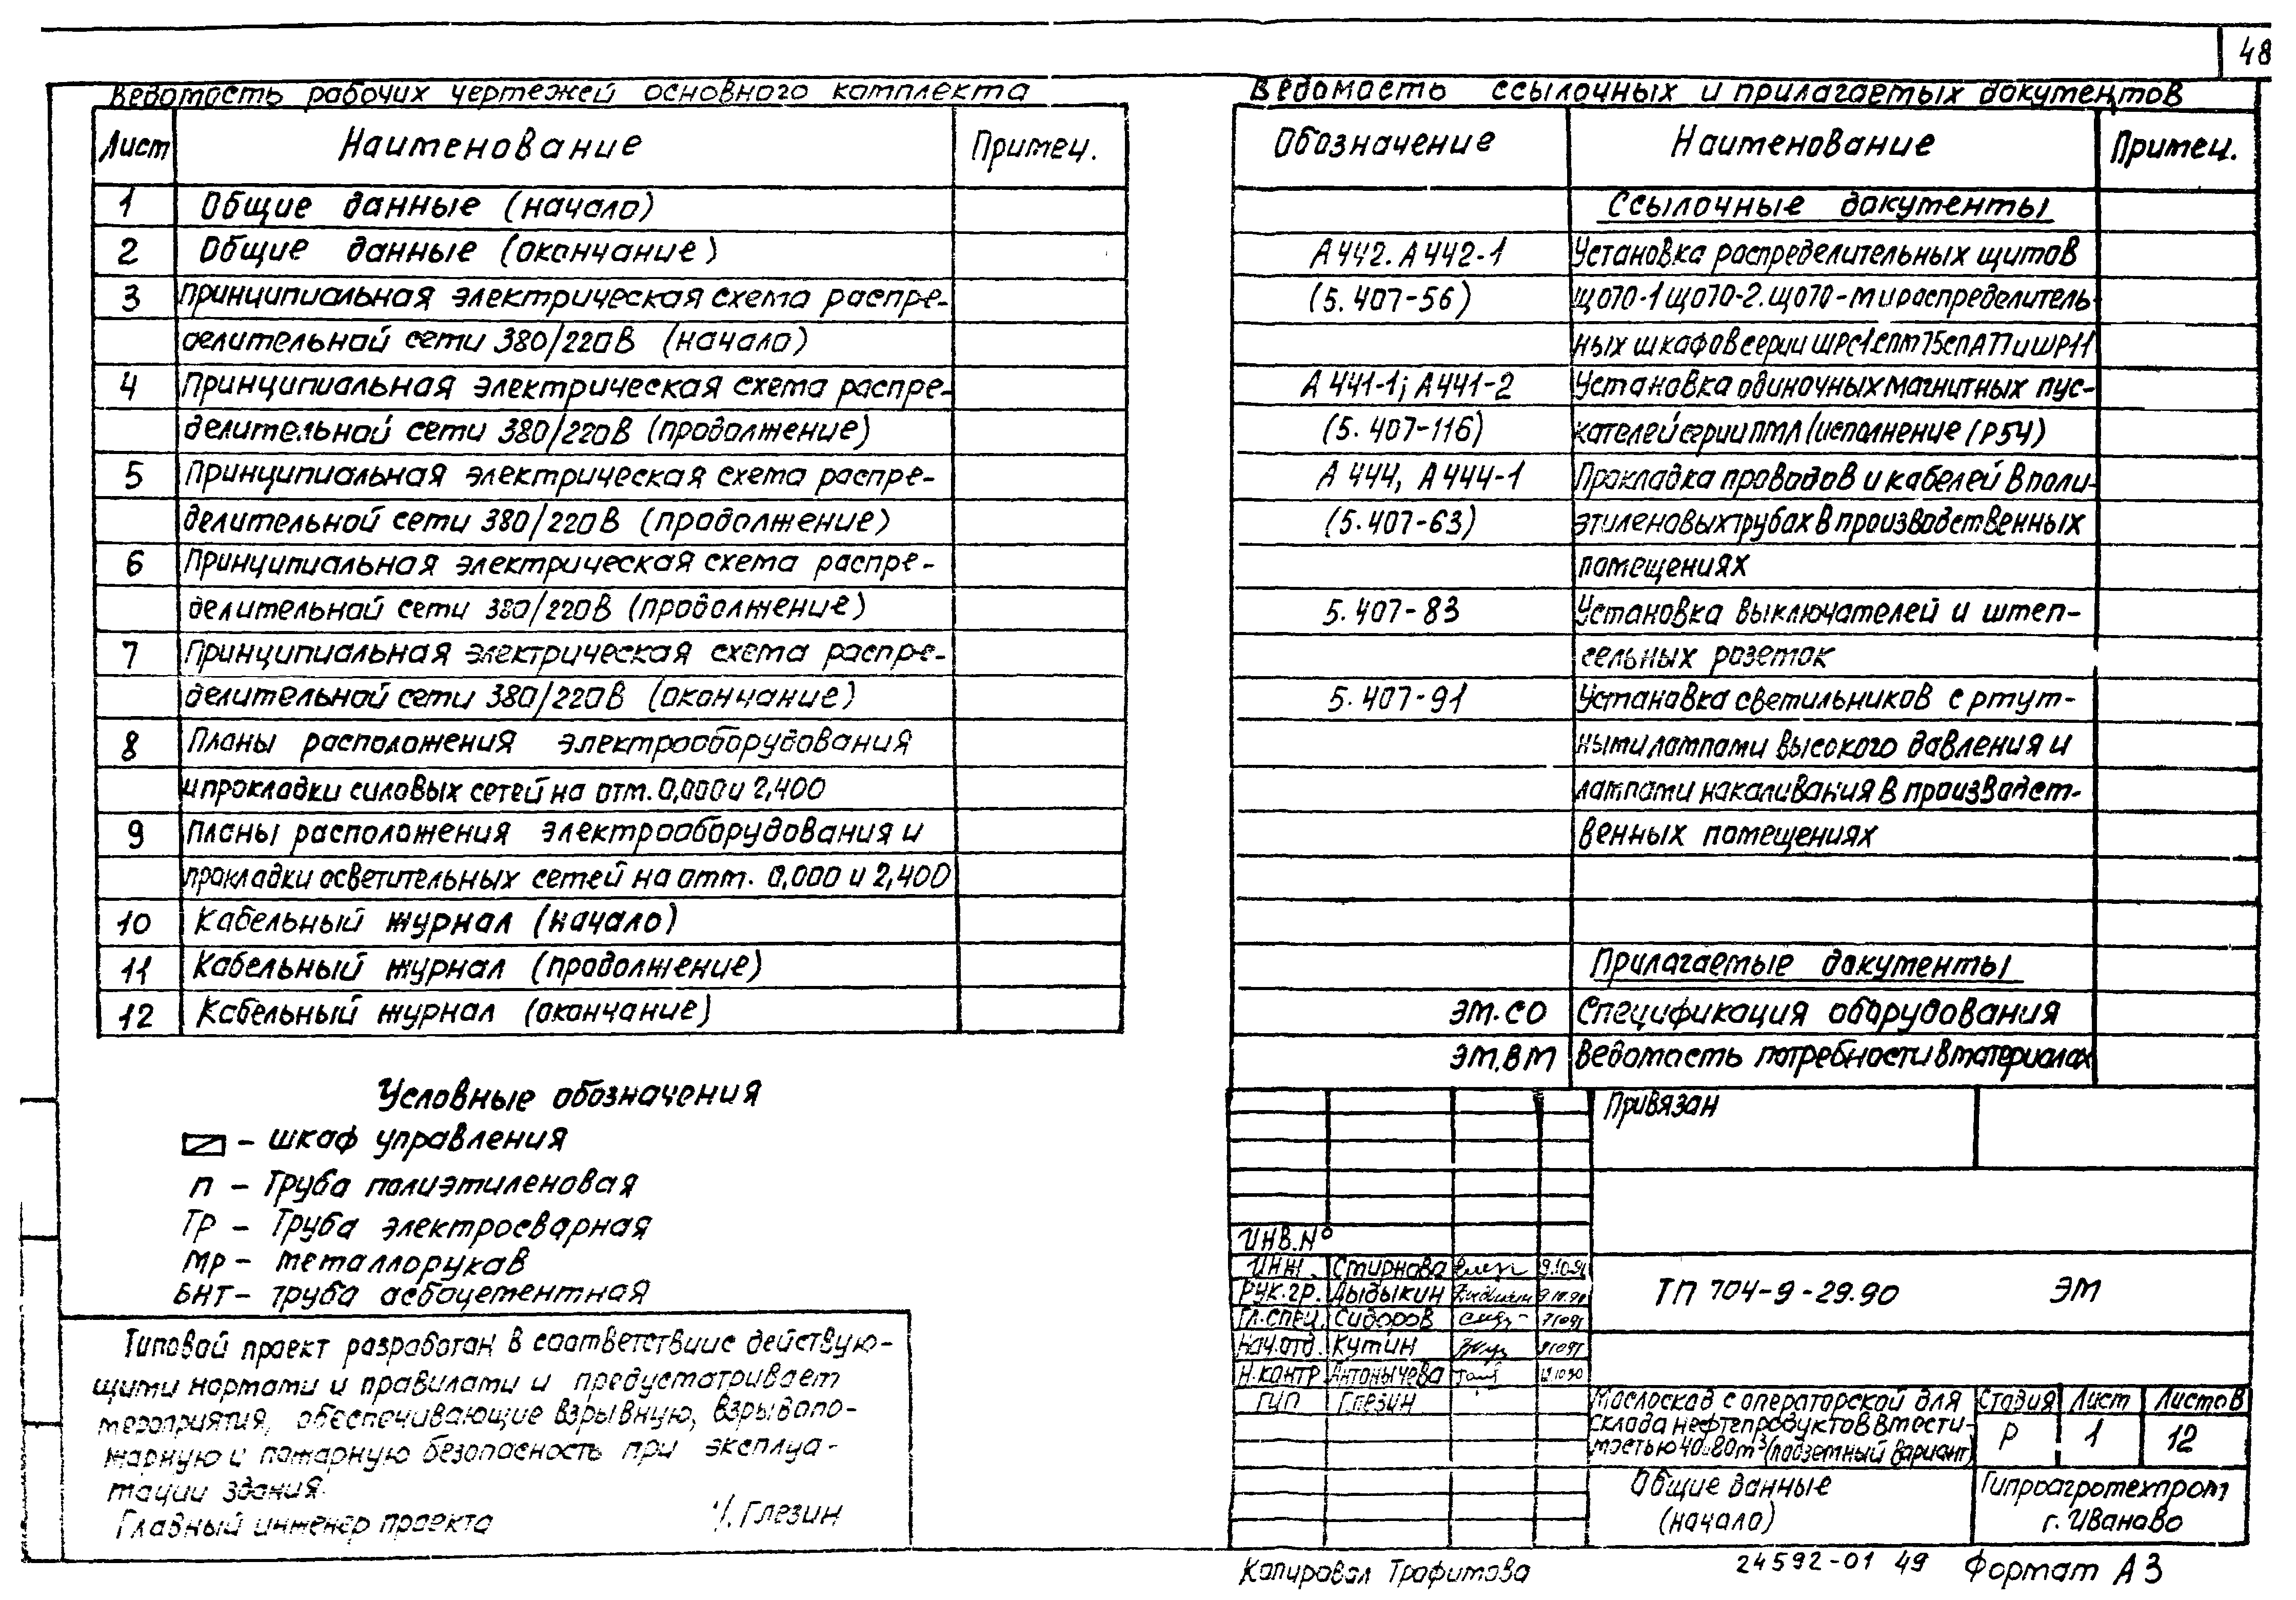 48
Ведомость рабочих чертежей основного комплекта
Лист Наименование Примеч.
1 Общие данные (начало)
2 Общие данные (окончание)
3 Принципиальная электрическая схема распре-
делительной сети 380/220В (начало)
4 Принципиальная электрическая схема распре-
делительной сети 380/220В (продолжение)
5 Принципиальная электрическая схема распре-
делительной сети 380/220В (продолжение)
6 Принципиальная электрическая схема распре-
делительной сети 380/220В (продолжение)
7 Принципиальная электрическая схема распре-
делительной сети 380/220В (окончание)
8 Планы расположения электрооборудования
и прокладки силовых сетей на отм. 0,000 и 2,400
9 Планы расположения электрооборудования и
прокладки осветительных сетей на отм. 0,000 и 2,400
10 Кабельный журнал (начало)
11 Кабельный журнал (продолжение)
12 Кабельный журнал (окончание)
Условные обозначения
– шкаф управления
П – Труба полиэтиленовая
ТР – Труба электросварная
МР – металлорукав
БНТ – труба асбоцементная
Типовой проект разработан в соответствиис действую-
щими нормами и правилами и предусматривает
мероприятия, обеспечивающие взрывную, взрывопо-
жарную и пожарную безопасность при эксплуа-
тации здания.
Главный инженер проекта Глезин
Ведомость ссылочных и прилагаемых документов
Обозначение Наименование Примеч.
Ссылочные документы
А442. А442-1 Установка распределительных щитов
(5.407-56) ЩО70-1 ЩО70-2. ЩО70-М и распределитель-
ных шкафов серии ШРС1 СПМ75 СПА77 и ШР11
А441-1; А441-2 Установка одиночных магнитных пус-
(5.407-116) кателей серии ПМЛ (исполнение IP54)
А444, А444-1 Прокладка проводов и кабелей в поли-
(5.407-63) этиленовых трубах в производственных
помещениях
5.407-83 Установка выключателей и штеп-
сельных розеток
5.407-91 Установка светильников с ртут-
ными лампами высокого давления и
лампами накаливания в производст-
венных помещениях
Прилагаемые документы
ЭМ.СО Спецификация оборудования
ЭМ.ВМ Ведомость потребности в материалах
Привязан
ИНВ.№
Инж. Смирнова
Рук.гр. Дыдыкин
Гл.спец. Сидоров
Нач.отд. Кутин
Н.контр Антонычева
ГИП Глезин
ТП 704-9-29.90 ЭМ
Маслосклад с операторской для
склада нефтепродуктов вмести-
мостью 40..80m³ (подземный вариант)
Стадия Лист Листов
Р 1 12
Общие данные
(начало)
Гипроагротехпром
г. Иваново
Копировал Трофимова
24592-01 49 Формат А3